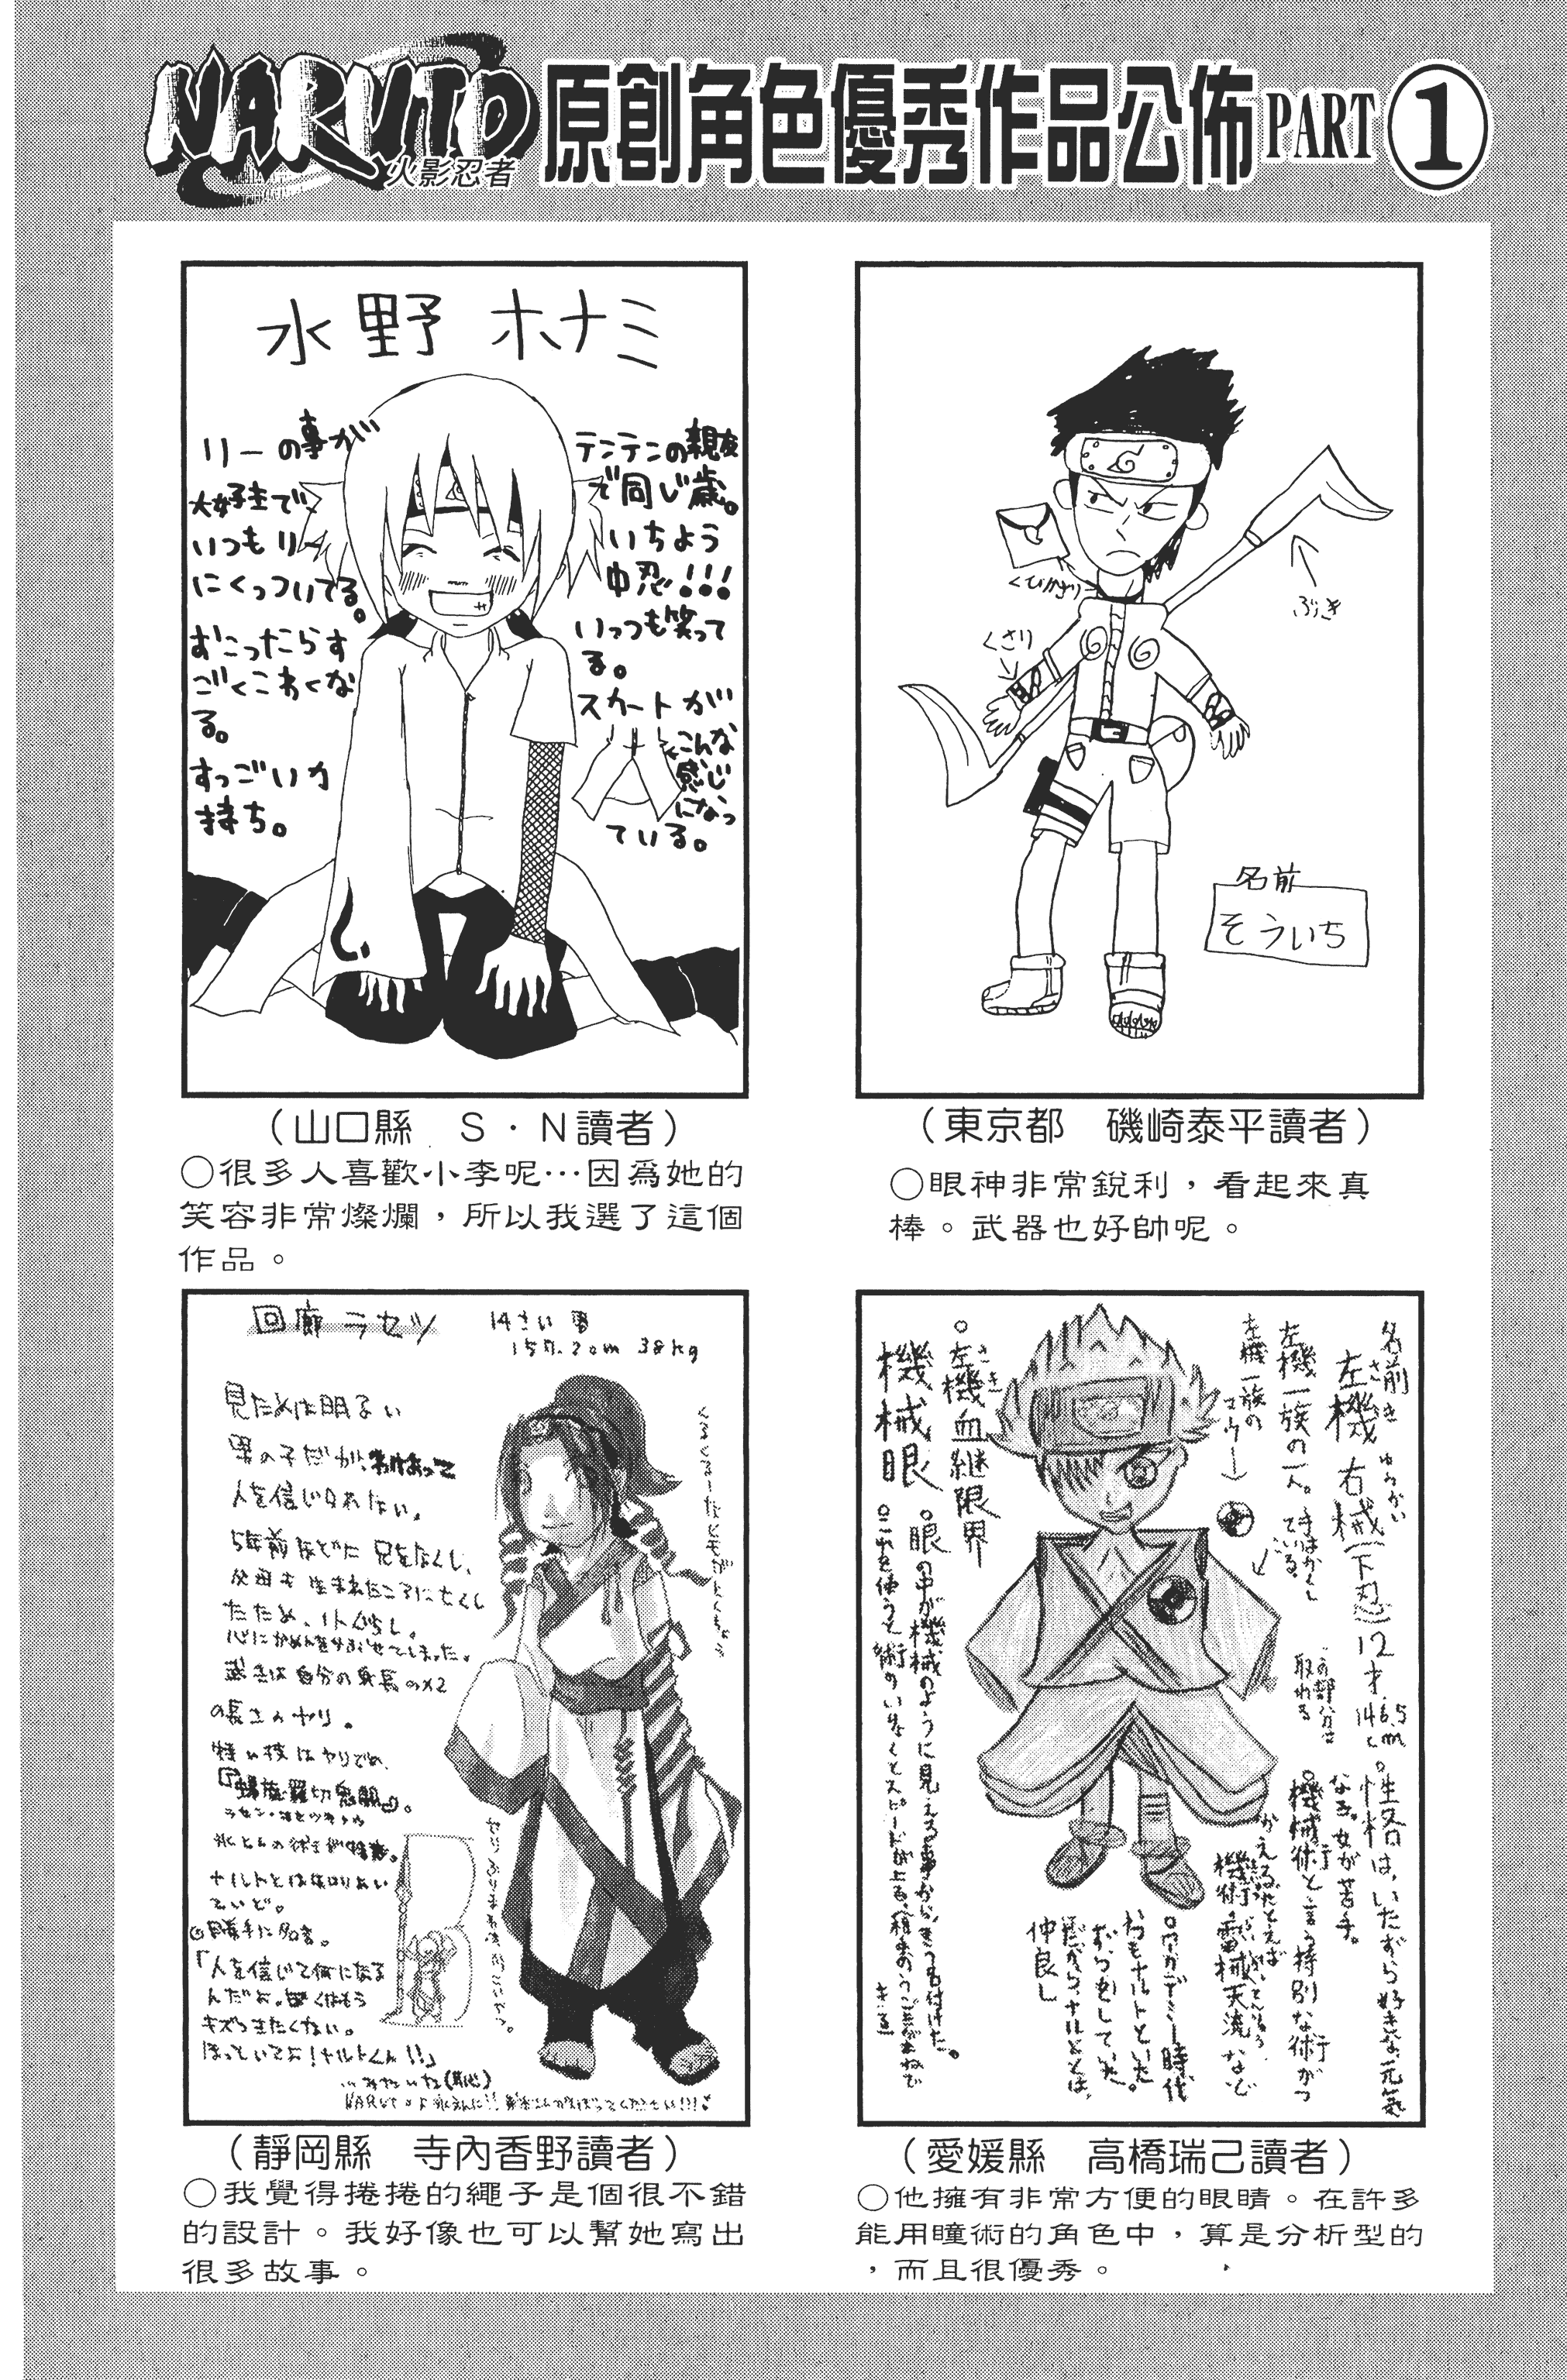 NARUTO
火影忍者
原創角色優秀作品公佈PART①
水野 ホナミ
テンテンの親友
で同じ歳。
いちよう
中忍!!!
いっつも笑って
る。
スカートが
こんな
感じ
になっ
ている。
リーの事が
大好きで
いつもリー
にくっついてる。
おこったらす
ごくこわくな
る。
すっごい力
持ち。
(山口縣 S・N讀者)
○很多人喜歡小李呢…因為她的
笑容非常燦爛，所以我選了這個
作品。
くさり
ぶき
名前
そういち
(東京都 磯崎泰平讀者)
○眼神非常銳利，看起來真
棒。武器也好帥呢。
回廊 ラセツ
14さい 男
157.2cm 38kg
見ためは明るい
男の子だが、わけあって
人を信じられない。
5年前などに兄をなくし、
父母も生まれたころに亡くし
たため、1人ぐらし。
武きは自分の身長の×2
の長さのヤリ。
ナルトとは知りあい
ていど。
「人を信じて何になる
んだよ。ボクはもう
キズつきたくない。
ほっといてよ!ナルトくん!!」
…みたいな
(靜岡縣 寺內香野讀者)
○我覺得捲捲的繩子是個很不錯
的設計。我好像也可以幫她寫出
很多故事。
名前
左機 右械(下忍)12才
146.5cm
左機一族の一人。
左機一族の
マーク→
。性格は、いたずら好きな、元気
なる。女が苦手。
。機械術と言う特別な術がつ
かえる。たとえば
仲良し
。左機血継限界
機械眼
。眼の中が機械のように見える事から、そう名付けた。
(愛媛縣 高橋瑞己讀者)
○他擁有非常方便的眼睛。在許多
能用瞳術的角色中，算是分析型的
，而且很優秀。